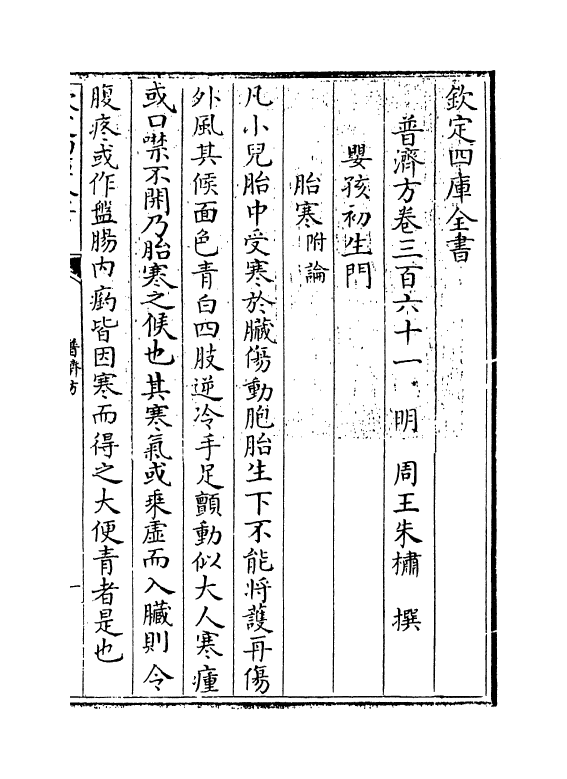 欽定四庫全書
普濟方卷三百六十一　明　周王朱橚　撰
嬰孩初生門
胎寒附論
凡小兒胎中受寒於臟傷動胞胎生下不能將護再傷
外風其候面色青白四肢逆冷手足顫動似大人寒瘇
或口噤不開乃胎寒之候也其寒氣或乗虛而入臟則令
腹疼或作盤腸内瘹皆因寒而得之大便青者是也
普濟方
一